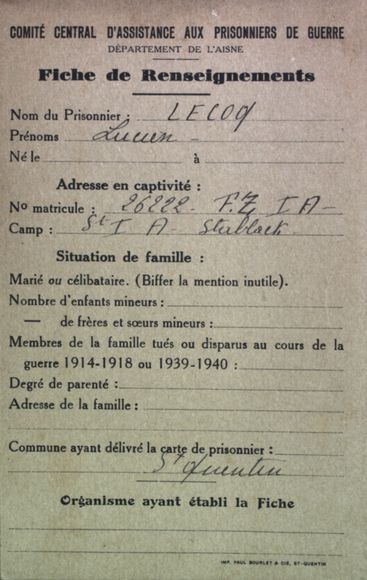 COMITÉ CENTRAL D'ASSISTANCE AUX PRISONNIERS DE GUERRE
DÉPARTEMENT DE L'AISNE
Fiche de Renseignements
Nom du Prisonnier : LECOQ
Prénoms Lucien
Né le à
Adresse en captivité :
No matricule : 26222 - F.Z I A -
Camp : St I A - Stablack
Situation de famille :
Marié ou célibataire. (Biffer la mention inutile).
Nombre d'enfants mineurs :
— de frères et sœurs mineurs :
Membres de la famille tués ou disparus au cours de la
guerre 1914-1918 ou 1939-1940 :
Degré de parenté :
Adresse de la famille :
Commune ayant délivré la carte de prisonnier :
St Quentin
Organisme ayant établi la Fiche
IMP. PAUL BOURLET & CIE, ST-QUENTIN